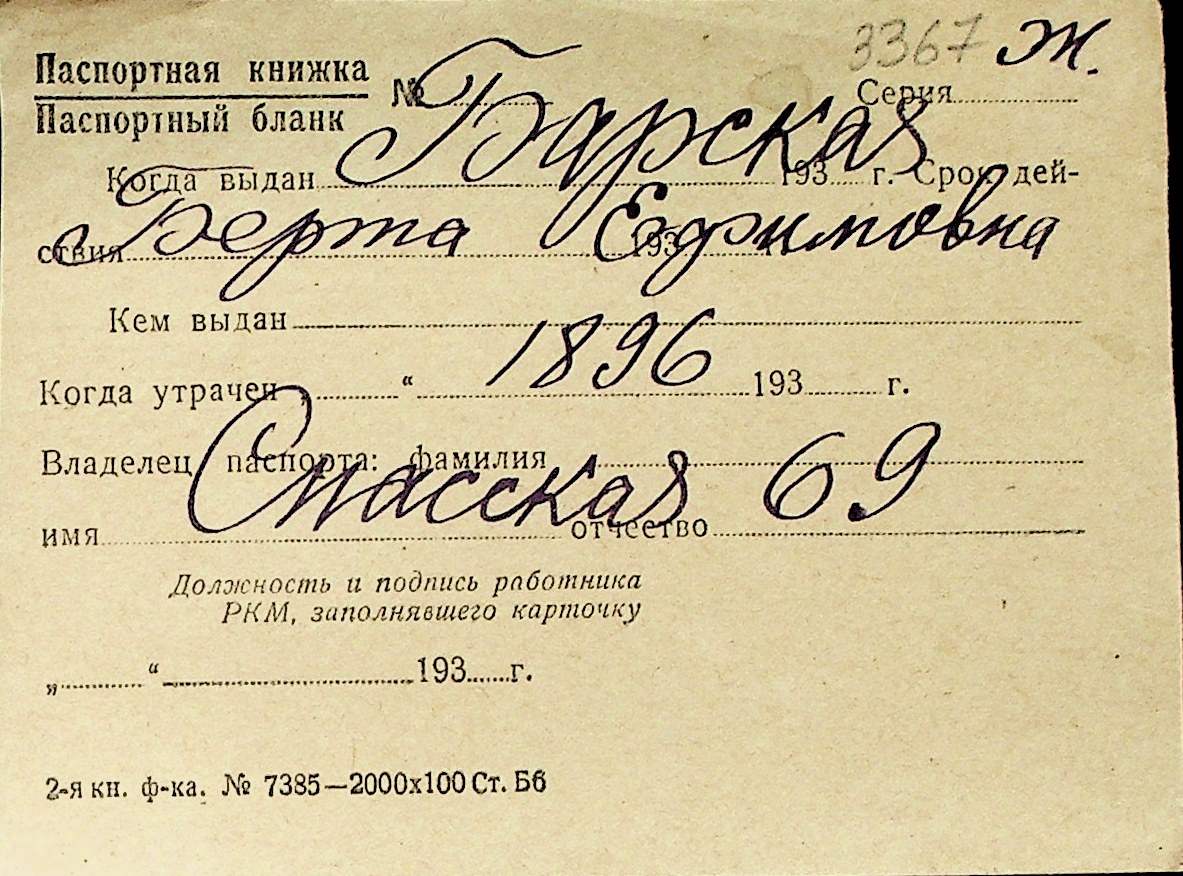 3367 Ж.
Паспортная книжка
Паспортный бланк
№ Серия
Барская
Когда выдан 193 г. Срок дей-
Берта Ефимовна
ствия 193
Кем выдан
1896
Когда утрачен „ “ 193 г.
Владелец паспорта: фамилия
Спасская 69
имя отчество
Должность и подпись работника
РКМ, заполнявшего карточку
„ “ 193 г.
2-я кн. ф-ка. № 7385—2000х100 Ст. Бб